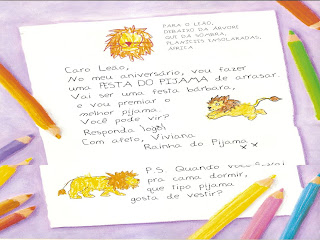 PARA O LEÃO,
DEBAIXO DA ÁRVORE
QUE DÁ SOMBRA,
PLANÍCIES ENSOLARADAS,
ÁFRICA
Caro Leão,
No meu aniversário, vou fazer
uma FESTA DO PIJAMA de arrasar.
Vai ser uma festa bárbara,
e vou premiar o
melhor pijama.
Você pode vir?
Responda logo!
Com afeto, Viviana
Rainha do Pijama
x x
P.S. Quando
pra cama dormir,
que tipo pijama
gosta de vestir?